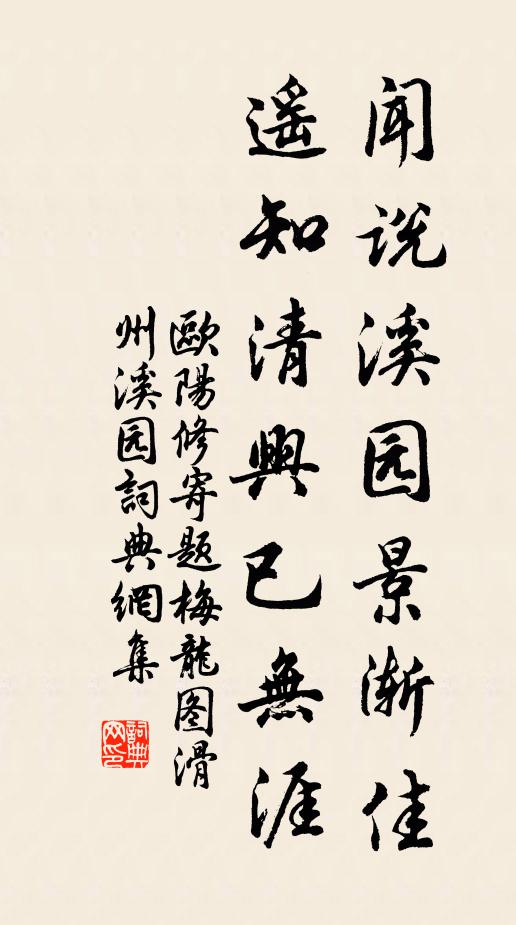 闻说溪园景渐佳
遥知清興已無涯
歐陽修寄题梅龍图滑
州溪园詞典網集
詞典
网印